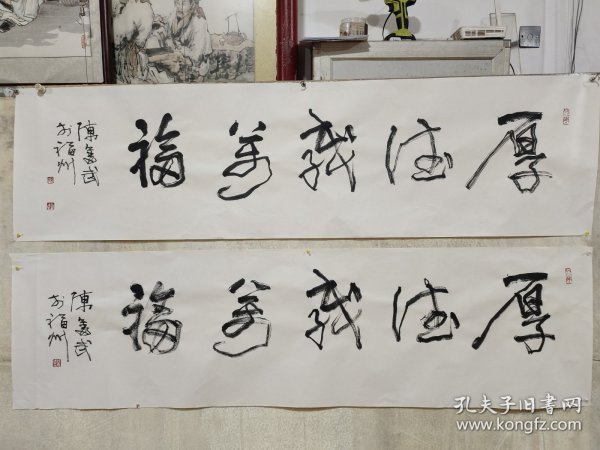 厚德载万福
陈奮武
于福州
厚德载万福
陈奮武
于福州
孔夫子旧书网
www.kongfz.com